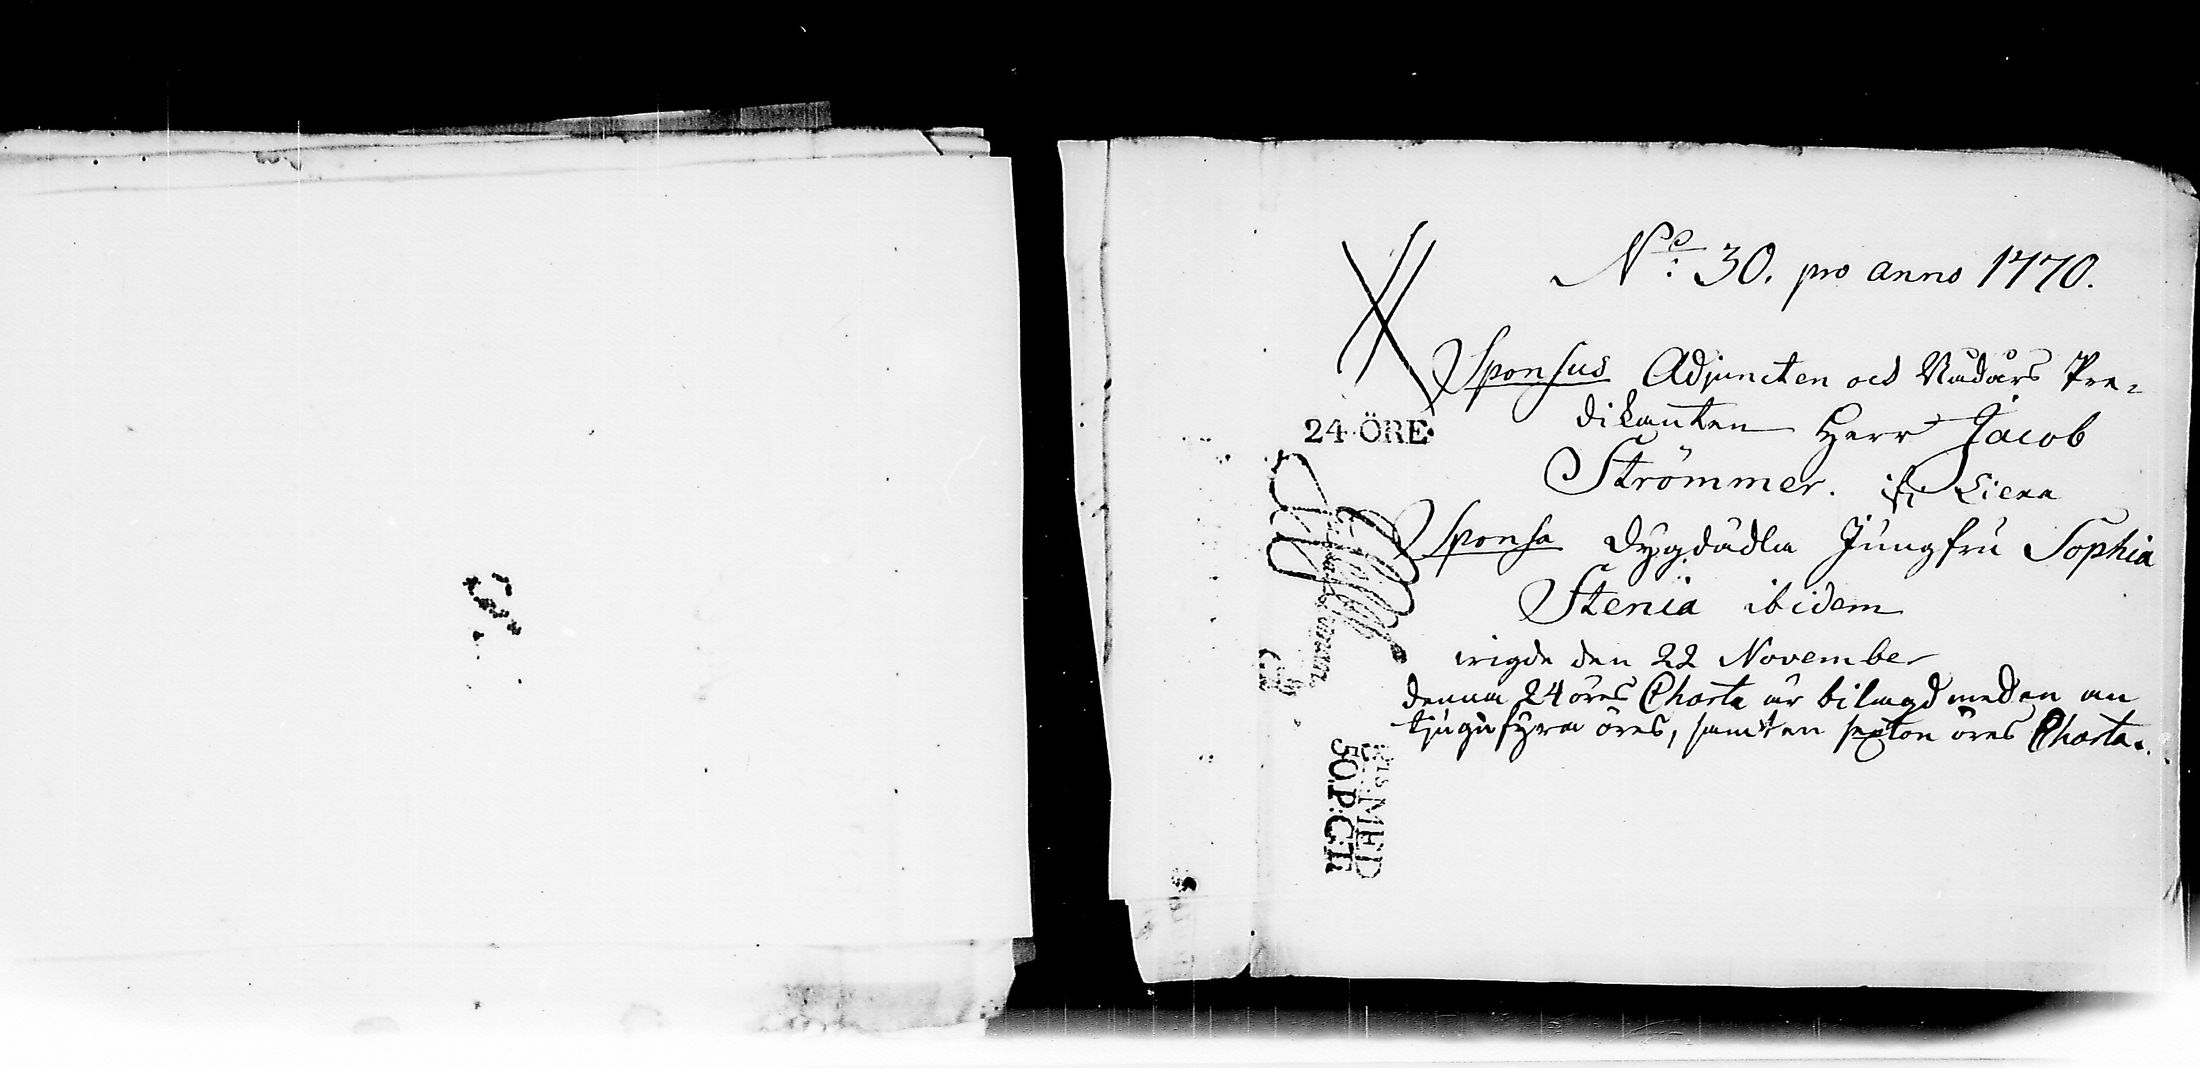 No: 30. pro anno 1770.
Sponsus Adjuncten och Nådårs Pre-
dikanten Herr Jacob
Strömmer. ifr
24·ÖRE·
Sponsa dygdädla Jungfru Sophia
Stenia ibidem
wigde den 22 November
denna 24 öres Charta är bilagd med en an
tjugufyra öres, samt en sexton öres Charta.
MED
50.P:CT: